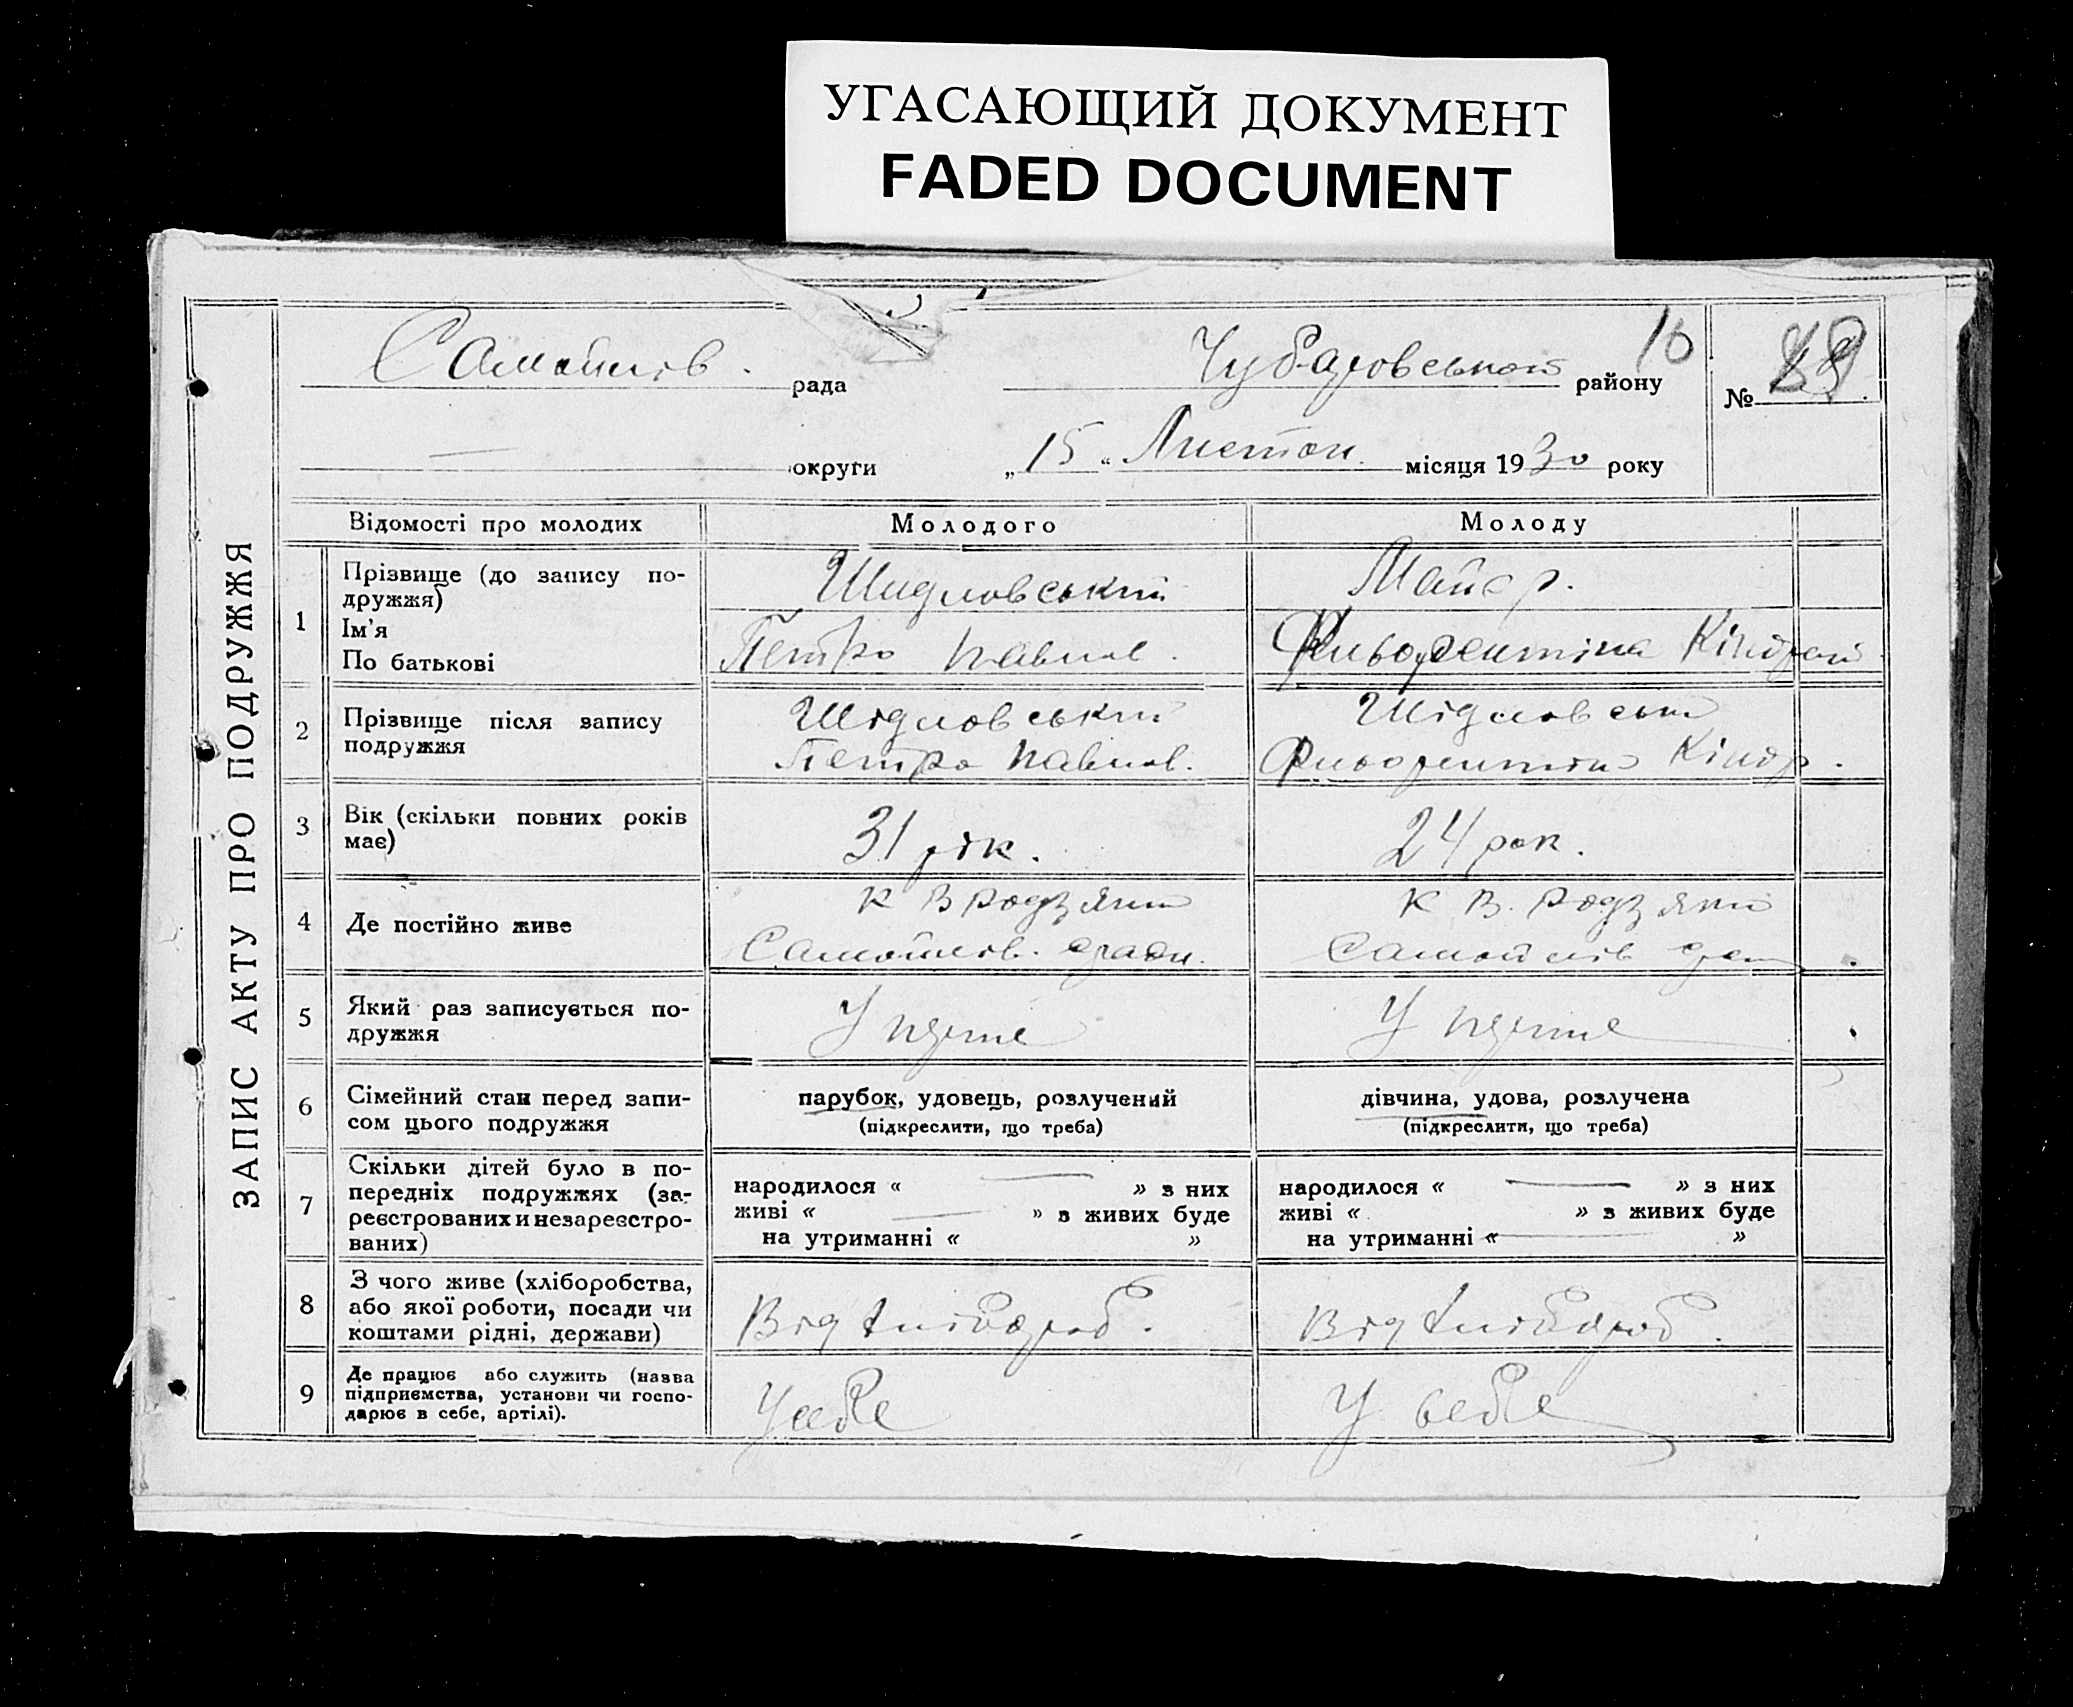 УГАСАЮЩИЙ ДОКУМЕНТ
FADED DOCUMENT
ЗАПИС АКТУ ПРО ПОДРУЖЖЯ
Самойлів. рада
Чубарівської району
16
№
округи
„15“ Листоп. місяця 1930 року
Відомості про молодих
Молодого
Молоду
1
Прізвище (до запису по-
дружжя)
Ім'я
По батькові
Шидловський
Петро Павлов.
Майєр.
Кіндрат
2
Прізвище після запису
подружжя
Шідловський
Петро Павлов.
Кіндр.
3
Вік (скільки повних років
має)
31 рік.
24 рок.
4
Де постійно живе
к В Родзянки
Самойлів. сради.
к В. Родзянки
Самойлів
5
Який раз записується по-
дружжя
У перше
У перше
6
Сімейний стан перед запи-
сом цього подружжя
парубок, удовець, розлучений
(підкреслити, що треба)
дівчина, удова, розлучена
(підкреслити, що треба)
7
Скільки дітей було в по-
передніх подружжях (за-
реєстрованих и незареєстро-
ваних)
народилося « — » з них
живі « — » з живих буде
на утриманні « »
народилося « — » з них
живі « » з живих буде
на утриманні « — »
8
З чого живе (хліборобства,
або якої роботи, посади чи
коштами рідні, держави)
Від хлібороб.
Від хлібороб.
9
Де працює або служить (назва
підприємства, установи чи госпо-
дарює в себе, артілі).
У себе
У себе